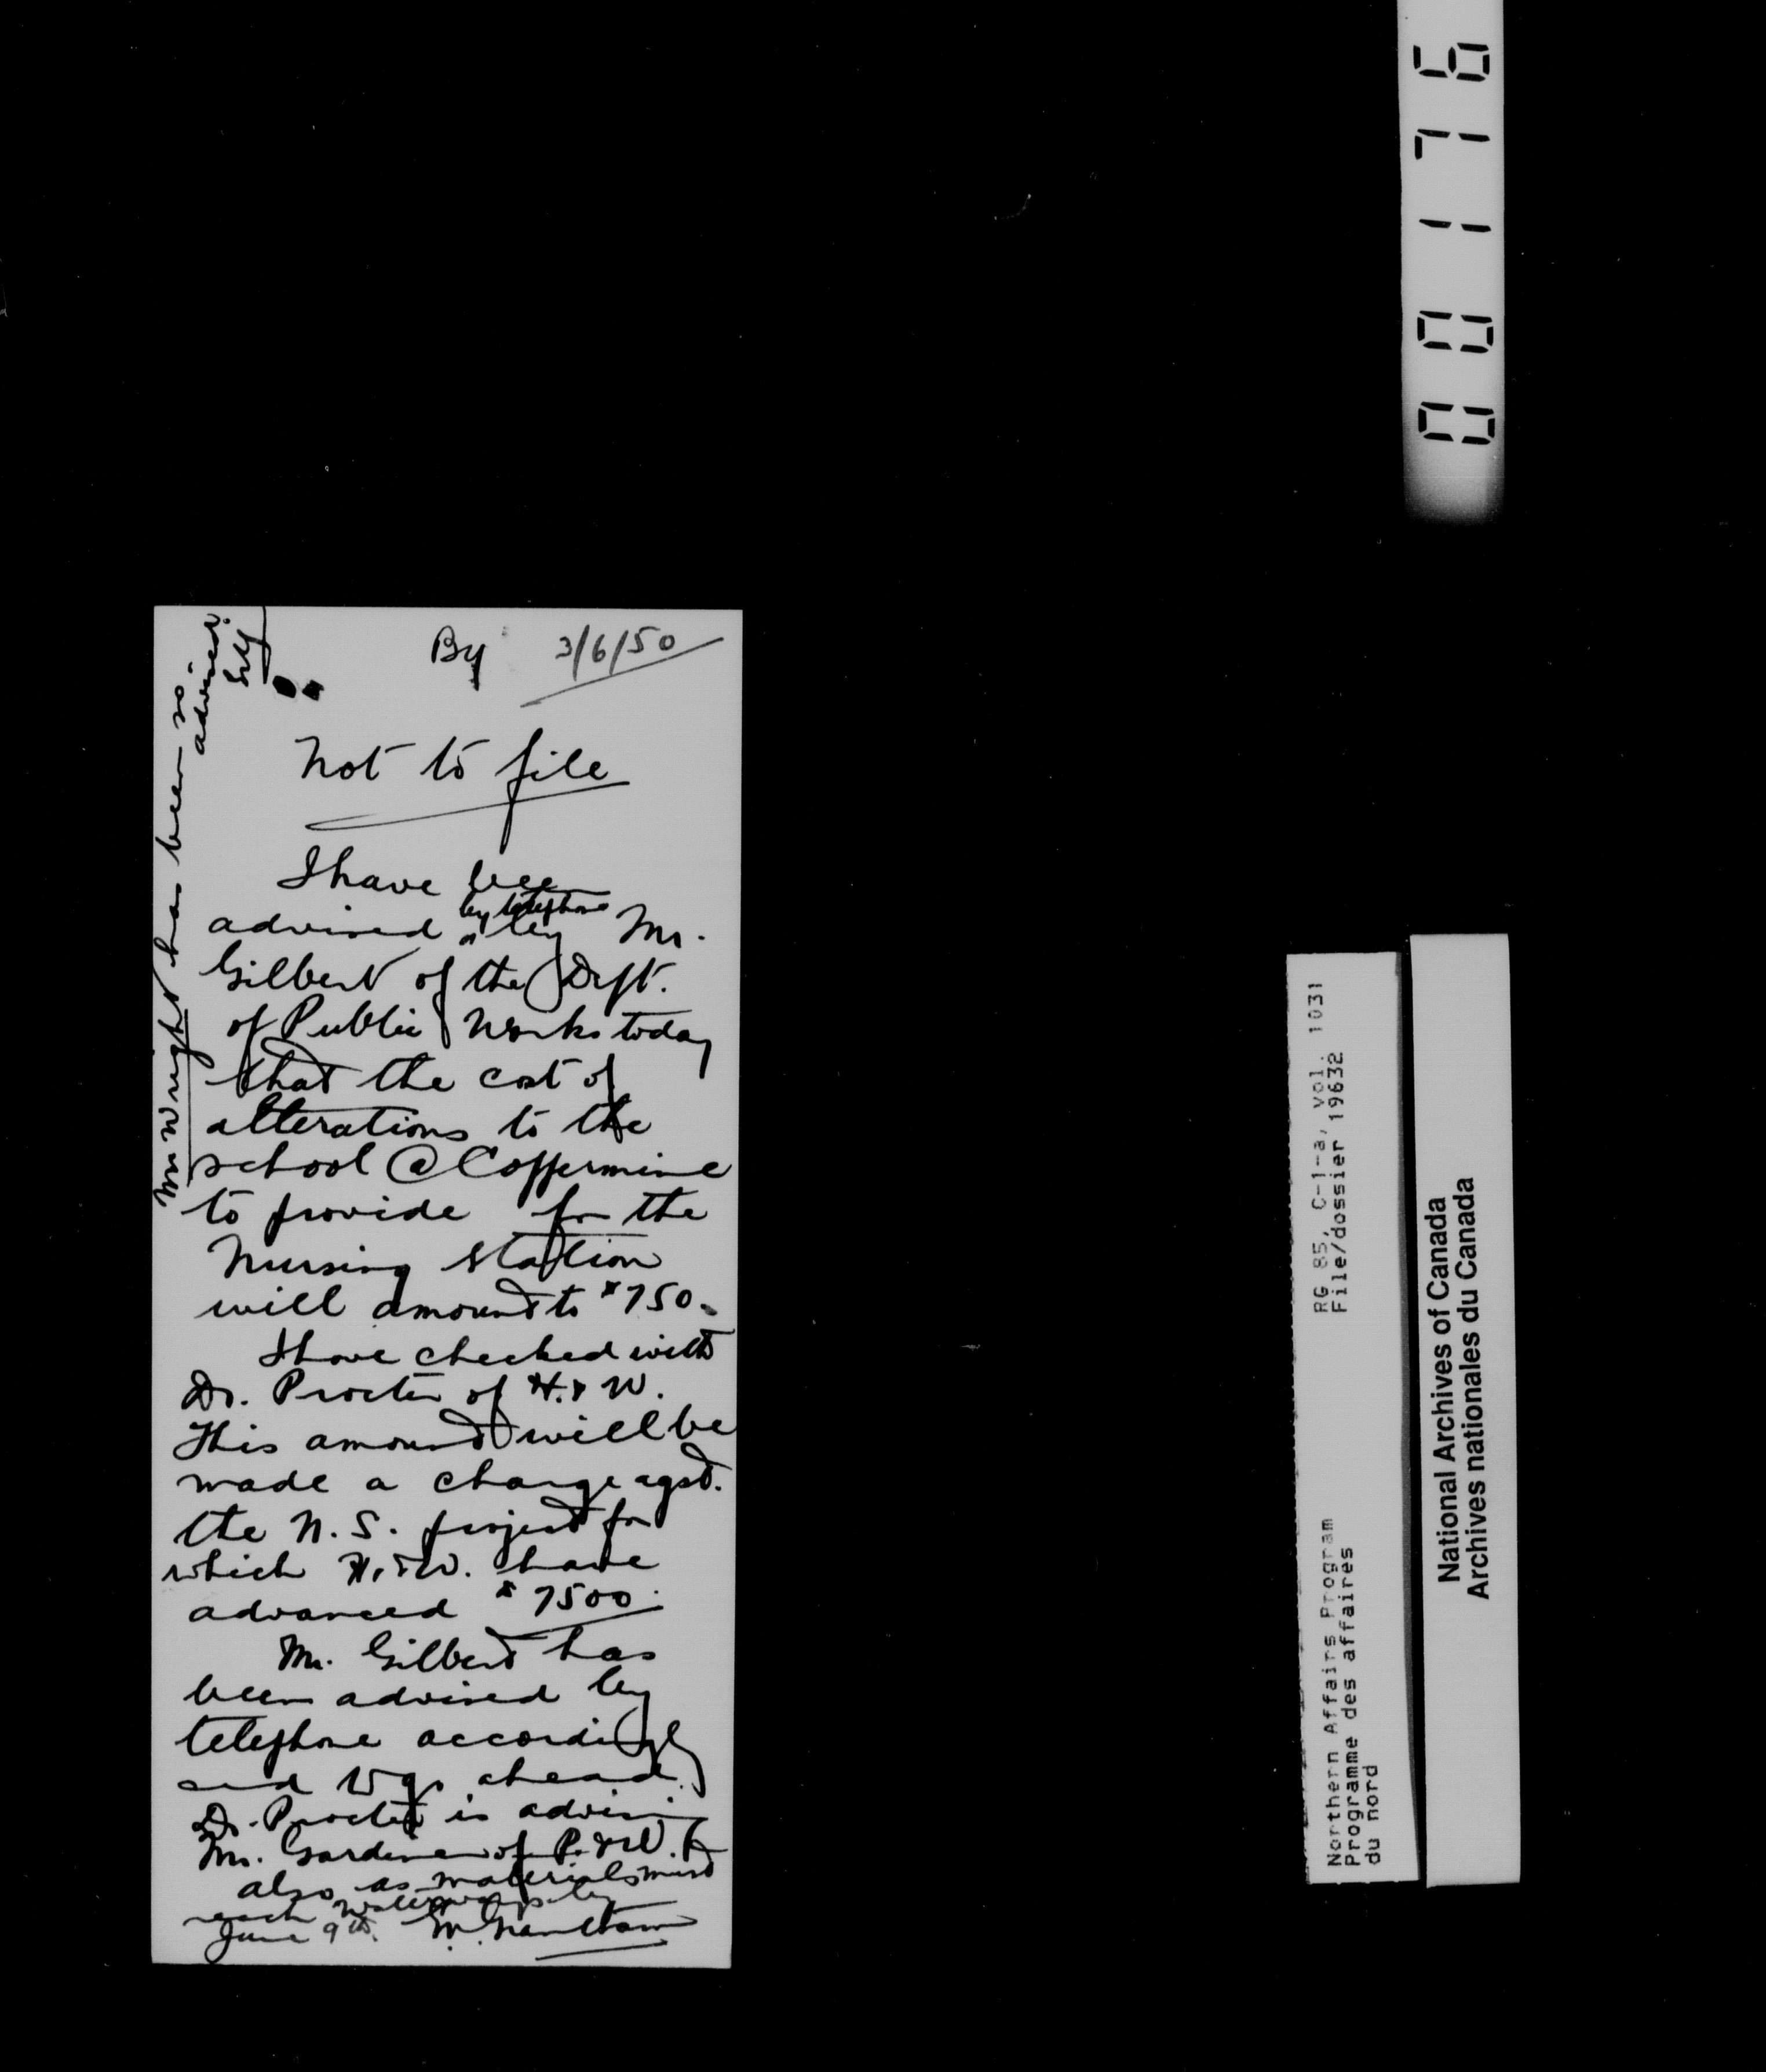 By 3/6/50
Not to file
I have been
by telephone
advised by Mr.
Gilbert of the Dept.
of Public Works today
that the cost of
alterations to the
school @ Coppermine
to provide for the
Nursing Station
will amount to $750.
I have checked with
Dr. Procter of H. & W.
This amount will be
made a charge agst.
the N.S. project for
which H. & W. have
advanced $7500.
Mr. Gilbert has
been advised by
telephone accordingly
and to go ahead.
Dr. Procter is advising
Mr. Gardiner of P.W.
also as materials must
reach Waterways by
June 9th.
Mr Wright has been so
advised.
001176
RG 85, C-1-a, vol. 1031
File/dossier 19632
Northern Affairs Program
Programme des affaires
du nord
National Archives of Canada
Archives nationales du Canada